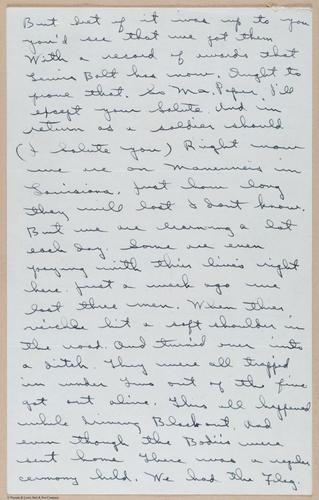 But bet if it was up to you
you'd see that we got them
With a record of awards that
Louis Bolt has now. Ought to
prove that. So Ma. Paper I'll
exsept your Salute. And in
return as a soldier should
(I salute you) Right now
we are on Maneuveirs in
Louisiana. Just how long
they will last I dont know.
But we are learning a lot
each day. Some are even
paying with their lives right
here. Just a week ago we
lost three men. When their
veicle hit a soft shoulder in
the road. And turned over into
a ditch. They were all trapped
in under Two out of the five
got out alive. This all happened
while Driving Blackout. And
even though the Bodies were
sent home There was a regular
cermony held. We had the Flag.